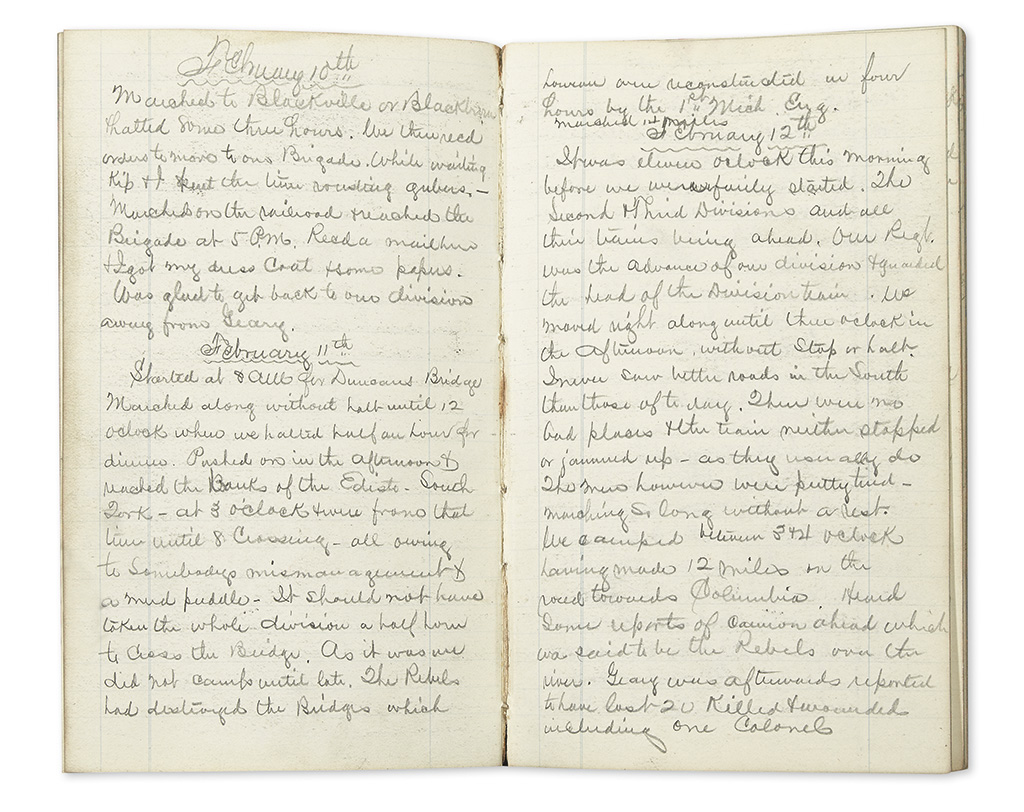 February 10th
Marched to Blackville or Blackburn
halted some three hours. We then recd
orders to move to our Brigade. While waiting
Kip & I the time roasting gubers. —
Marched on the railroad & reached the
Brigade at 5 P.M. Recd a mail here
& I got my dress Coat & some papers.
Was glad to get back to our division
away from Geary.
February 11th
Started at 8 AM for Duncans Bridge
Marched along without halt until 12
oclock when we halted half an hour for
dinner. Pushed on in the afternoon &
reached the Banks of the Edisto - South
Fork - at 3 o'clock & were from that
time until 8 Crossing - all owing
to Somebodys mismanagement &
a mud puddle - It should not have
taken the whole division a half hour
to Cross the Bridge. As it was we
did not camp until late. The Rebels
had destroyed the Bridges which
however were reconstructed in four
hours by the 1st Mich. Eng.
Marched 14 miles
February 12th
It was eleven oclock this morning
before we were fairly started. The
Second & Third Divisions and all
their trains being ahead. Our Regt.
was the advance of our division & guarded
the head of the Division train. We
moved right along until three oclock in
the afternoon, without Stop or halt.
I never saw better roads in the South
than those of to day. There were no
bad places & the train neither stopped
or jammed up - as they usually do
The men however were pretty tired -
marching so long without a rest.
We camped between 3 & 4 oclock
having made 12 miles on the
road towards Columbia. Heard
Some reports of cannon ahead which
was said to be the Rebels over the
river. Geary was afterwards reported
to have lost 20 Killed & wounded
including one Colonel